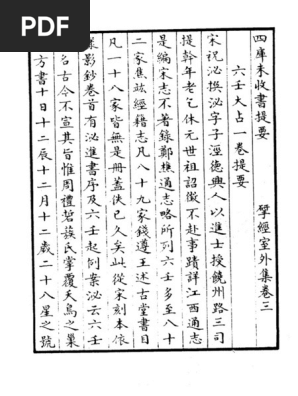 PDF
四庫未收書提要 揅經室外集卷三
六壬大占一卷提要
宋祝泌撰泌字子涇德興人以進士授饒州路三司
提幹年老乞休元世祖詔徵不赴事蹟詳江西通志
是編宋志不著錄鄭樵通志略所列六壬多至八十
二家焦竑經籍志凡八十九家錢遵王述古堂書目
凡一十八家皆無是册蓋佚已久矣此從宋刻本依
影鈔卷首有泌進書序及六壬起例案泌云六壬
古今不宣其旨惟周禮硩蔟氏掌覆夭鳥之巢
方書十日十二辰十二月十二歲二十八星之號